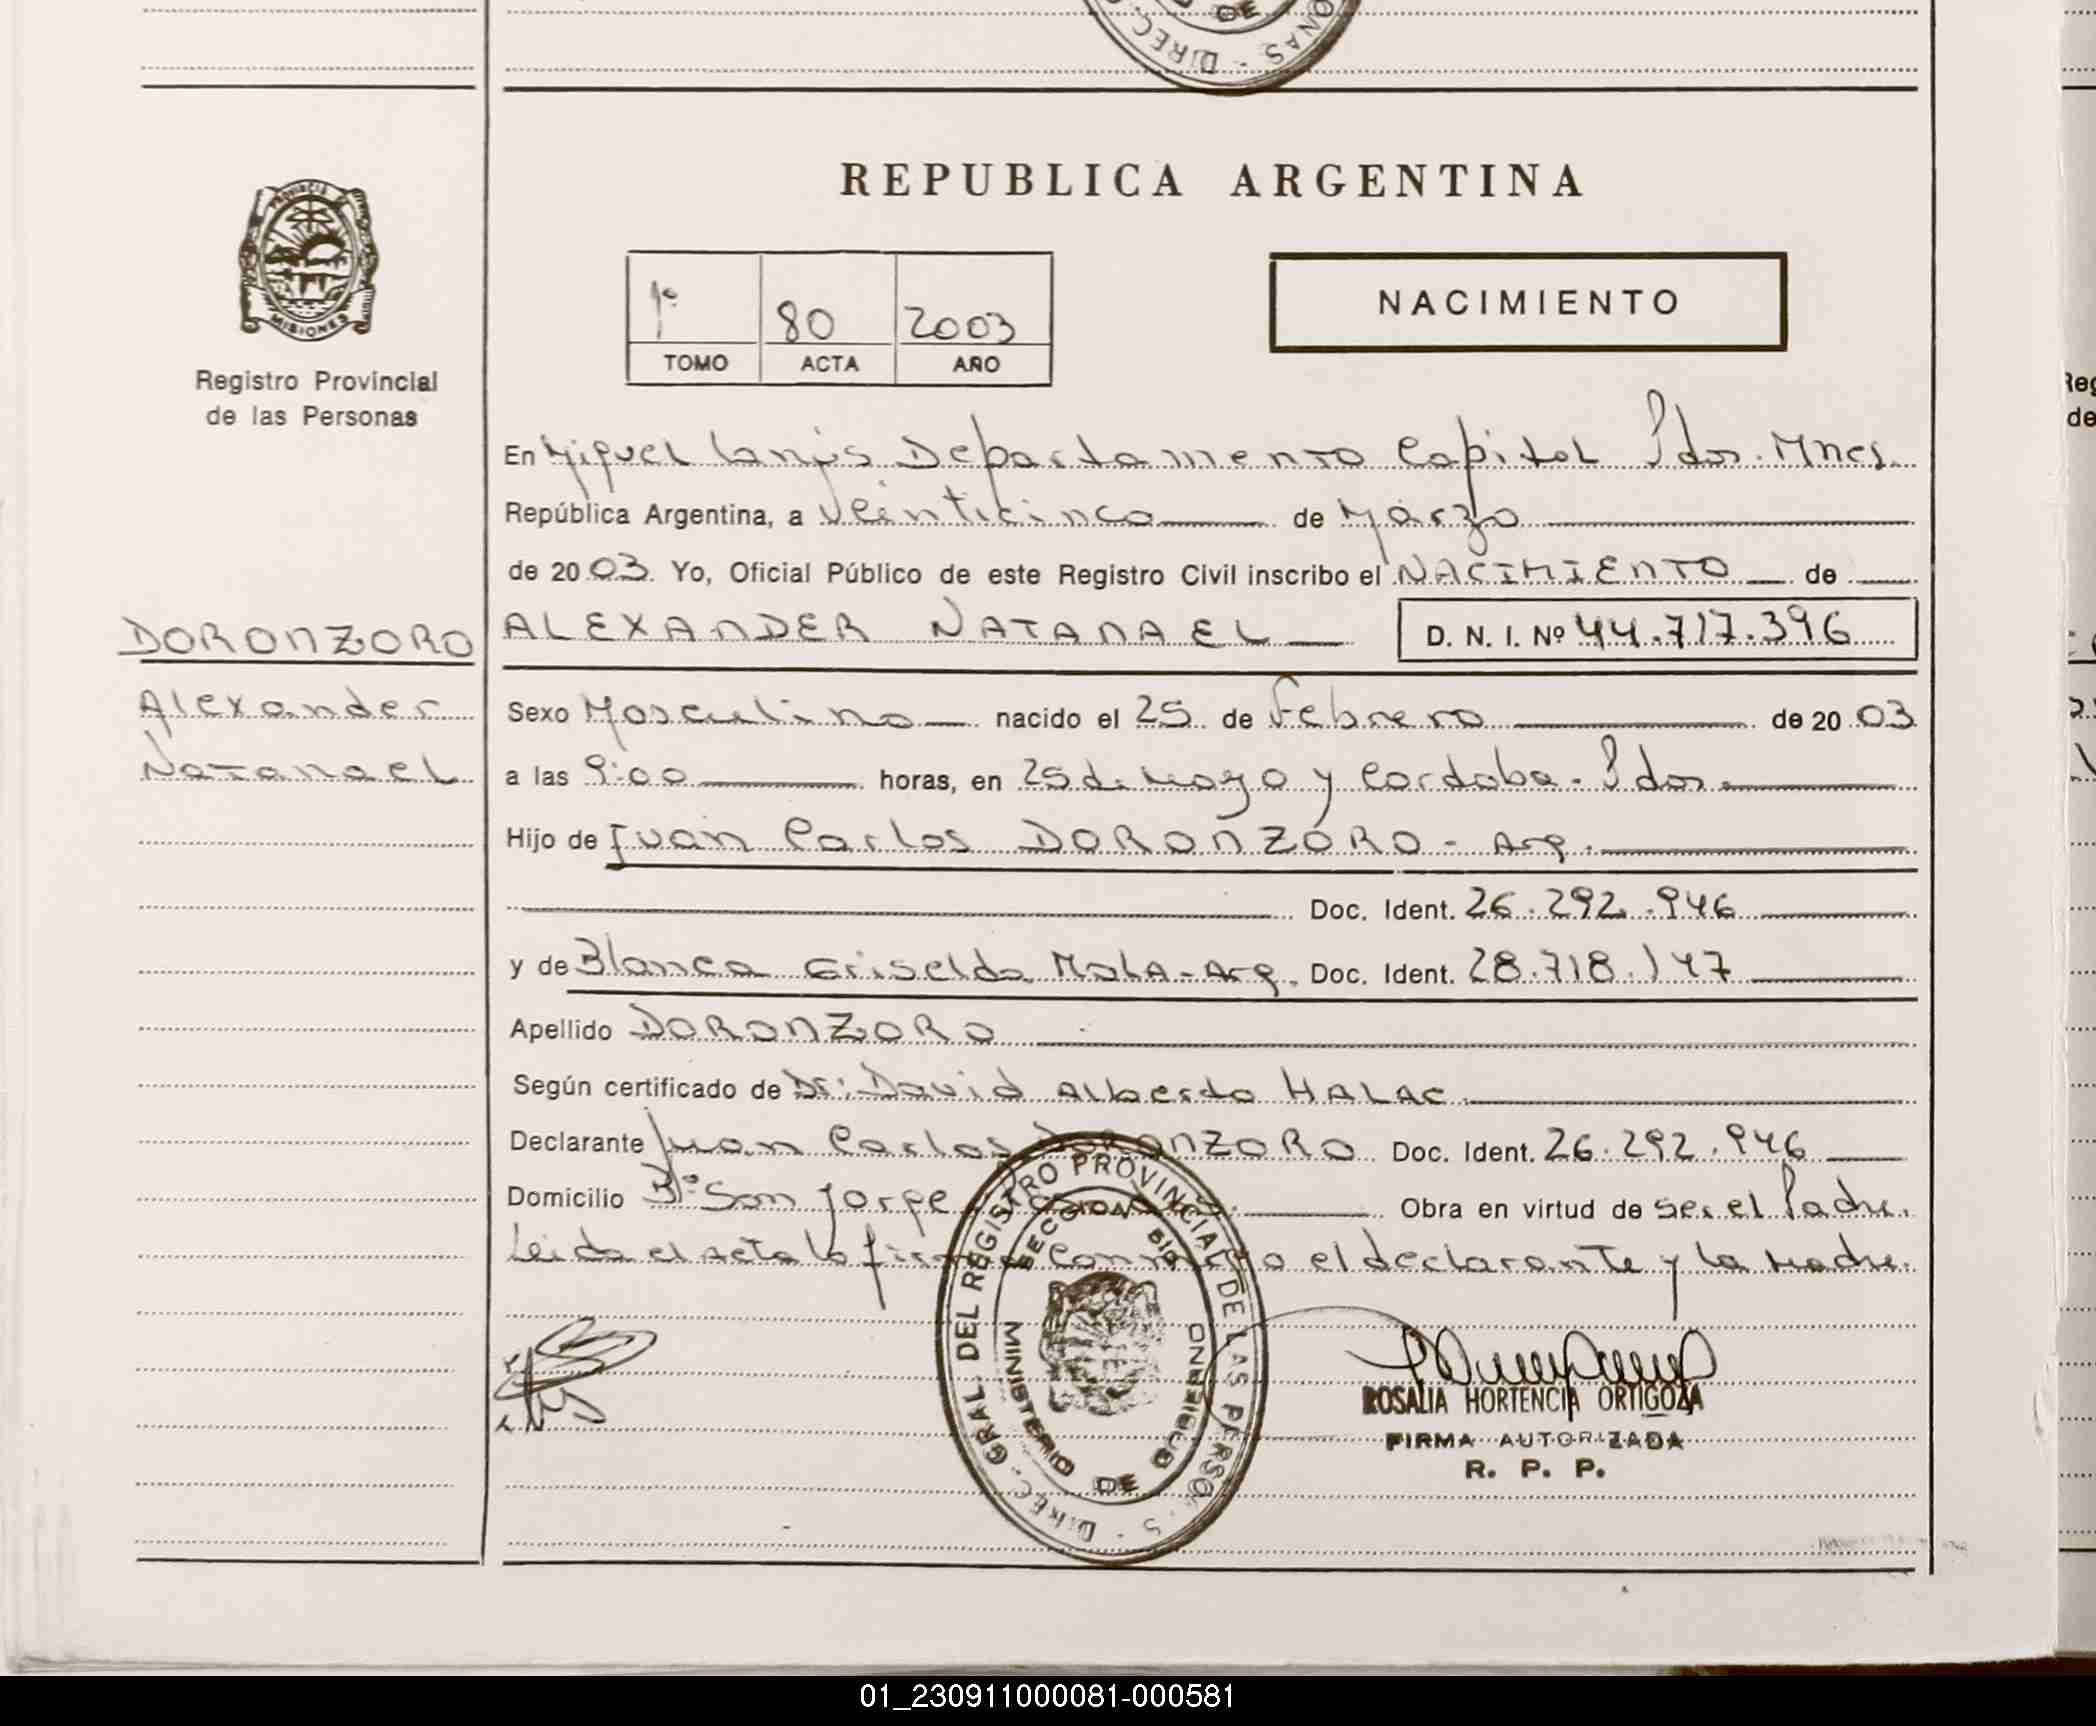 DE
DIREC.
REPUBLICA ARGENTINA
PROVINCIA DE
MISIONES
Registro Provincial
de las Personas
1º 80 2003
TOMO ACTA AÑO
NACIMIENTO
En Miguel Lanús Departamento Capital Pdas. Mnes.
República Argentina, a veinticinco de Marzo
de 2003. Yo, Oficial Público de este Registro Civil inscribo el NACIMIENTO de
DORONZORO
Alexander
Natanael
ALEXANDER NATANAEL D. N. I. Nº 44.717.396
Sexo Masculino nacido el 25 de Febrero de 2003
a las 9:00 horas, en 25 de Mayo y Cordoba - Pdas.
Hijo de Juan Carlos DORONZORO - Arg.
Doc. Ident. 26.292.946
y de Blanca Griselda Mola - Arg. Doc. Ident. 28.718.147
Apellido DORONZORO
Según certificado de Dr: David Alberto HALAC
Declarante Juan Carlos DORONZORO Doc. Ident. 26.292.946
Domicilio Bº San Jorge Obra en virtud de ser el Padre.
Leida el Acta la firma conmigo el declarante y la Madre.
DIREC. GRAL. DEL REGISTRO PROVINCIAL DE LAS PERSO S
SECCION
MINISTERIO DE GOBIERNO
ROSALIA HORTENCIA ORTIGOZA
FIRMA AUTORIZADA
R. P. P.
Reg
de
01_230911000081-000581